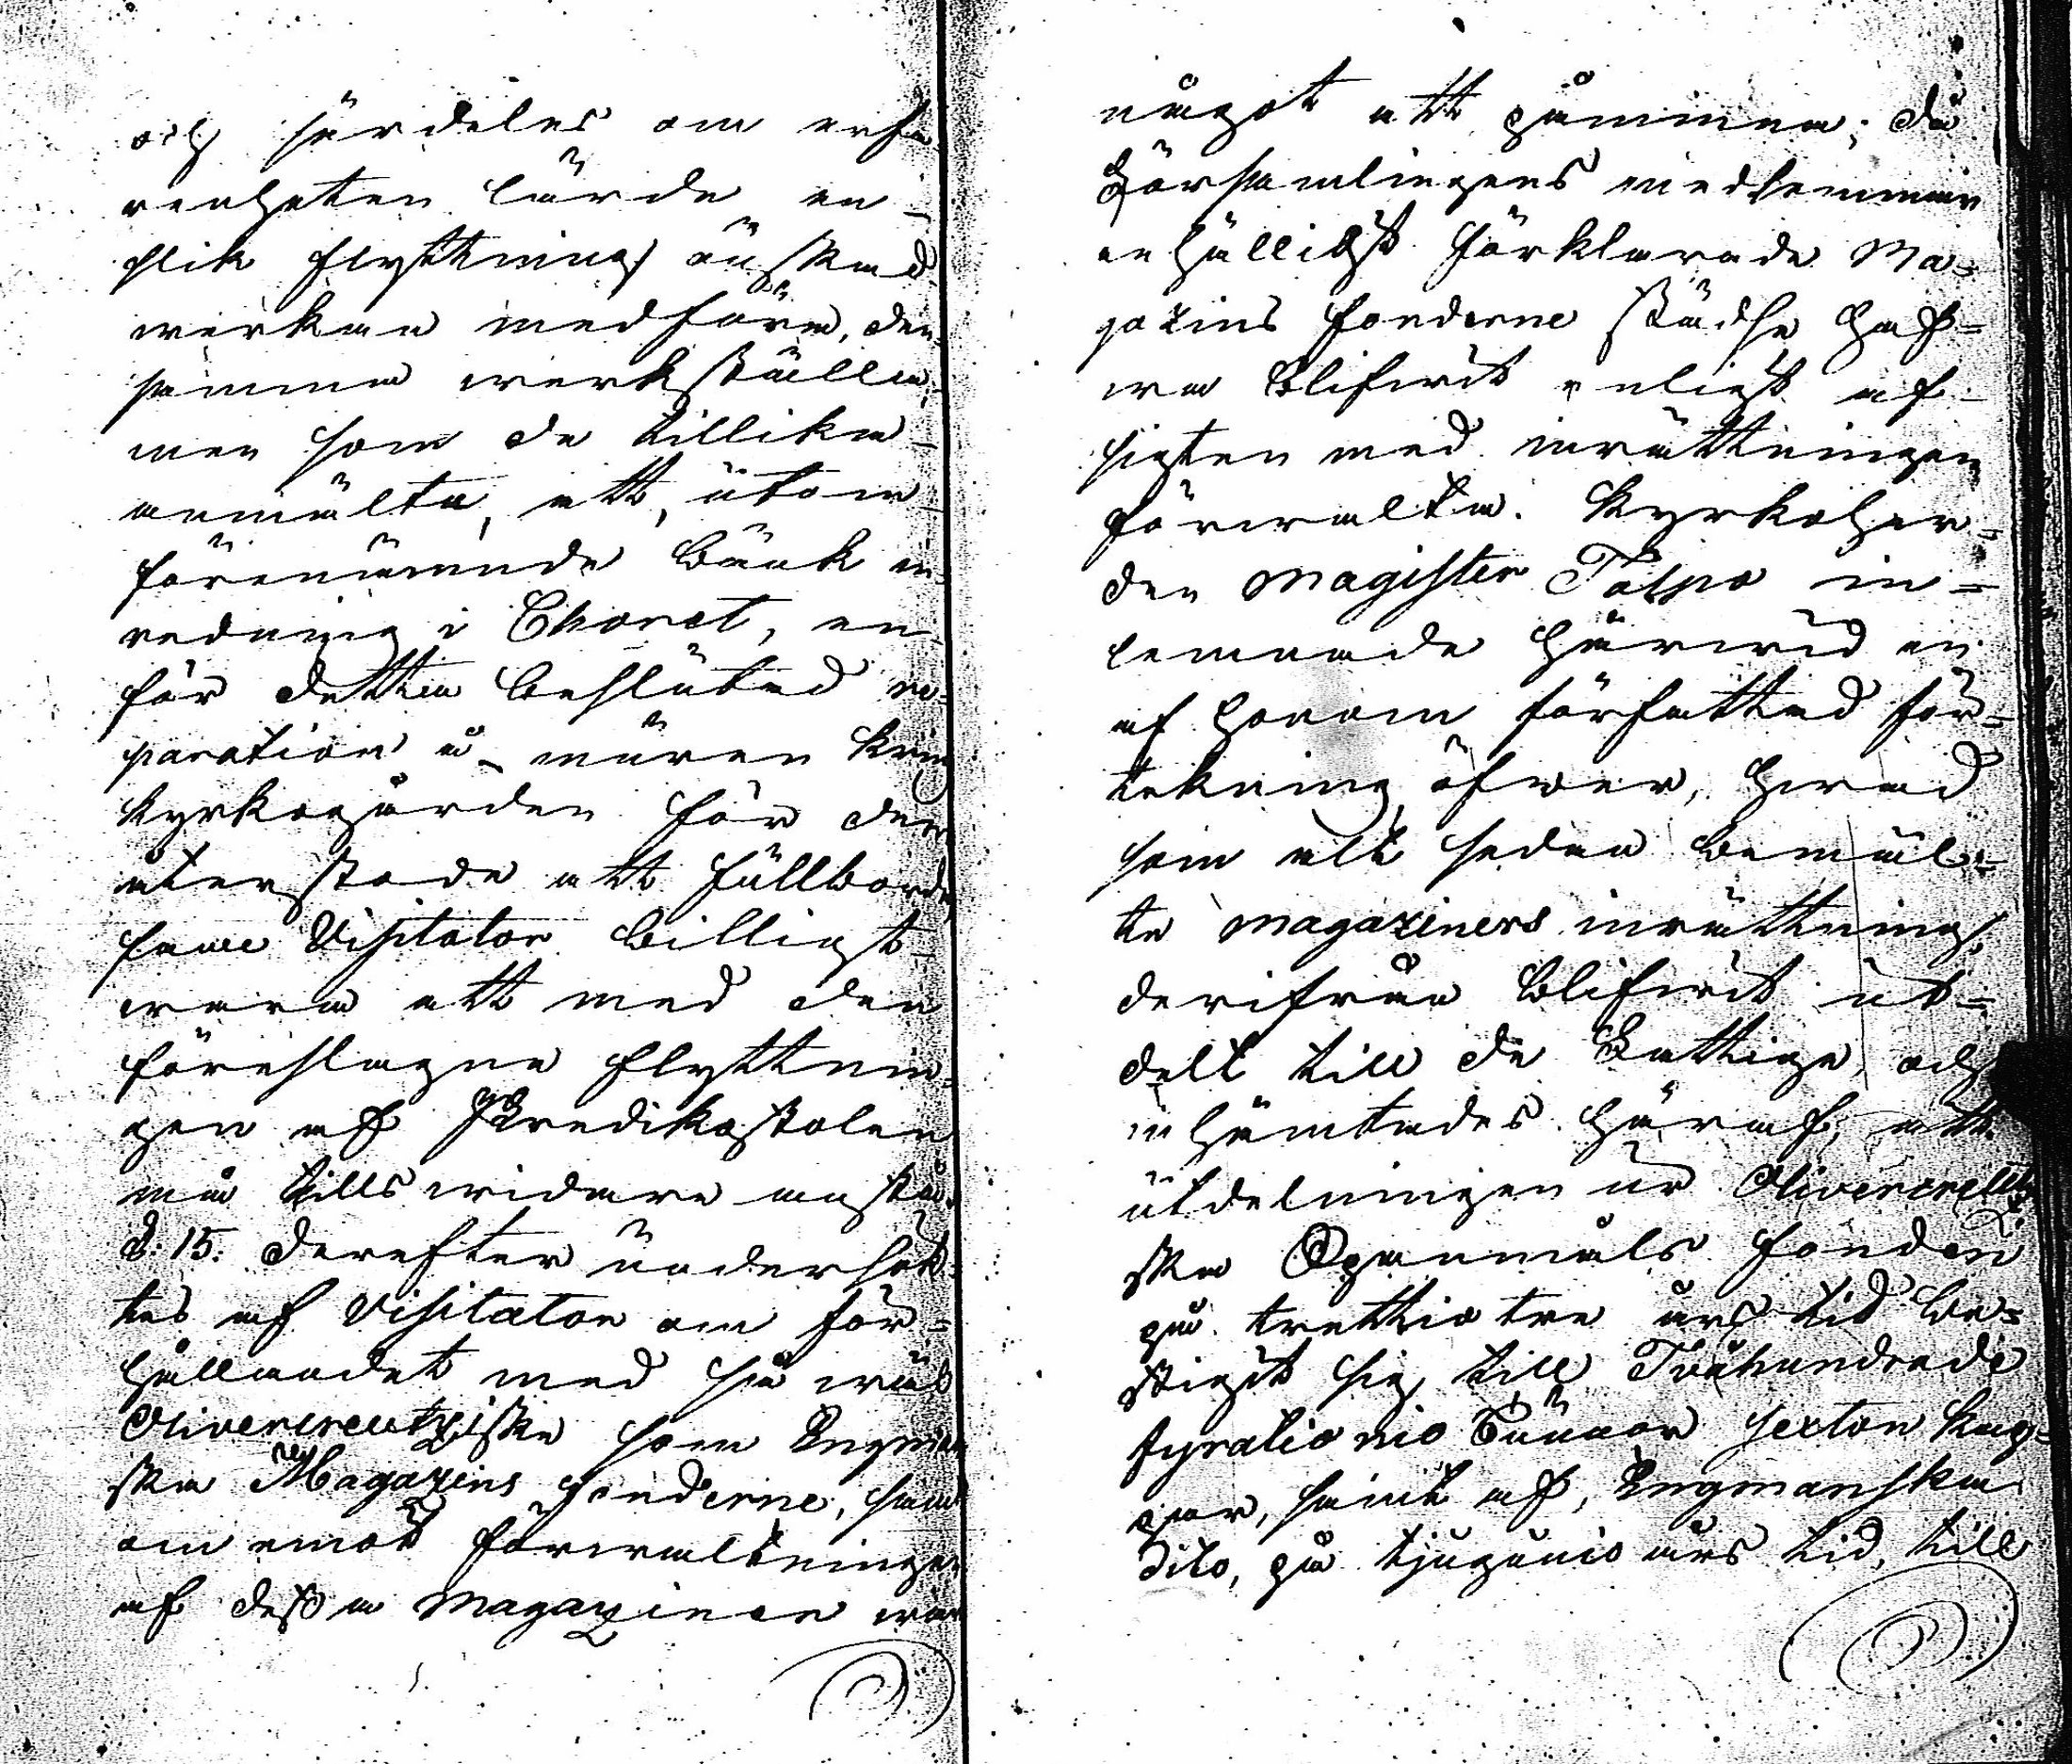 och särdeles om erfa
renheten lärde en
slik flyttning önskad
werkan medföra, den
samma werkställa;
men som de tillika
anmälte, att, utom
förenämnde bänk in
redning i Choret, en
för detta beslutad re
paration å muren kring
kyrkogården för dem
återstode att fullborda
fann Visitator billigst
wara att med den
föreslagne flyttnin
gen af Predikostolen
må tills widare anstå.
§: 15. Derefter undersök
tes af Visitator om för=
hållandet med så wäl
Olivecreutziske som Engman
ska Magazins fonderne, samt
om emot förwaltningen
af dessa Magaziner war
något att påminna; då
Församlingens medlemmar
enhälligt förklarade Ma=
gazins fonderne städse haf=
wa blifwit enligt af
sigten med inrättningen
förwalta. Kyrkoher=
den Magister Tolpo in=
lemnade härwid en
af honom författad för=
tekning öfwer, hwad
som allt sedan bemäl=
te Magaziners inrättning,
derifrån blifwit ut=
delt till de Fattige, och
inhämtades häraf, att
utdelningen ur Olivecreutz
ska Spanmåls fonden
på trettio tre års tid be=
stigit sig till Tvåhundrade
fyratio nio Tunnor sexton kap=
par, samt af Engmanska
dito, på tjugunio års tid, till